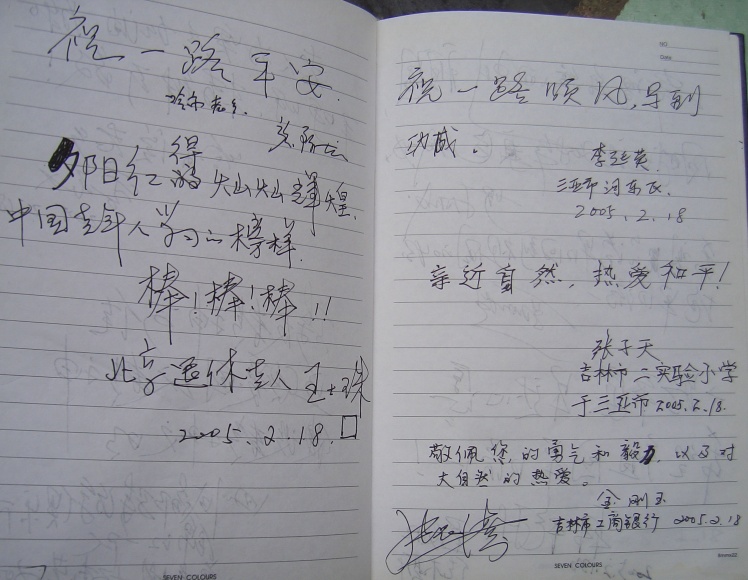 祝一路平安.
夕阳红得火火火火辉煌.
中国老年人学习的榜样.
棒！棒！棒！！
北京退休老人
2005.2.18.
SEVEN COLOURS
NO.
Date.
祝一路顺风，马到
功成。
李延英.
三亚市河东区.
2005.2.18
亲近自然，热爱和平！
张子天
吉林市二实验小学
于三亚市 2005.2.18.
敬佩您的勇气和毅力，以及对
大自然的热爱。
金刚玉
吉林市工商银行 2005.2.18
SEVEN COLOURS